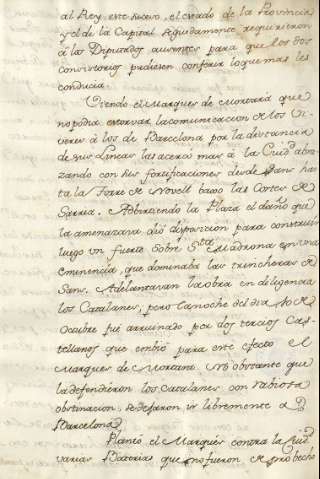 al Rey, este nuevo, el estado de la Provincia
y el de la Capital. Seguidamente requirieron
á los Diputados ausentes para que los dos
convistorios pudiesen conferir loque mas les
conducia.
Viendo el Marques de Mortara que
no podia estorvar la comunicacion de los Vi-
veres á los de Barcelona por la distancia
de sus Lineas las acercó mas á la Ciud abra-
zando con sus fortificaciones desde Sans has-
ta la Torre de Novell baxo las Cortes de
Sarria. Advirtiendo la Plaza el daño que
la amenazava dió disposicion para construir
luego un fuerte sobre Sta Madrona en una
eminencia, que dominaba las trincheras de
Sans. Adelantavan la obra en diligencia
los Catalanes, pero la noche del dia 10 de
Octubre fué arruinado por dos tercios Cas-
tellanos que embió para este efecto el
Marques de Mortara. No obstante que
la defendieron los Catalanes con rabiosa
obstinacion, se dejaron ir libremente a
Barcelona.
Plantó el Marqués contra la Ciud
varias Baterias que no fueron de provecho